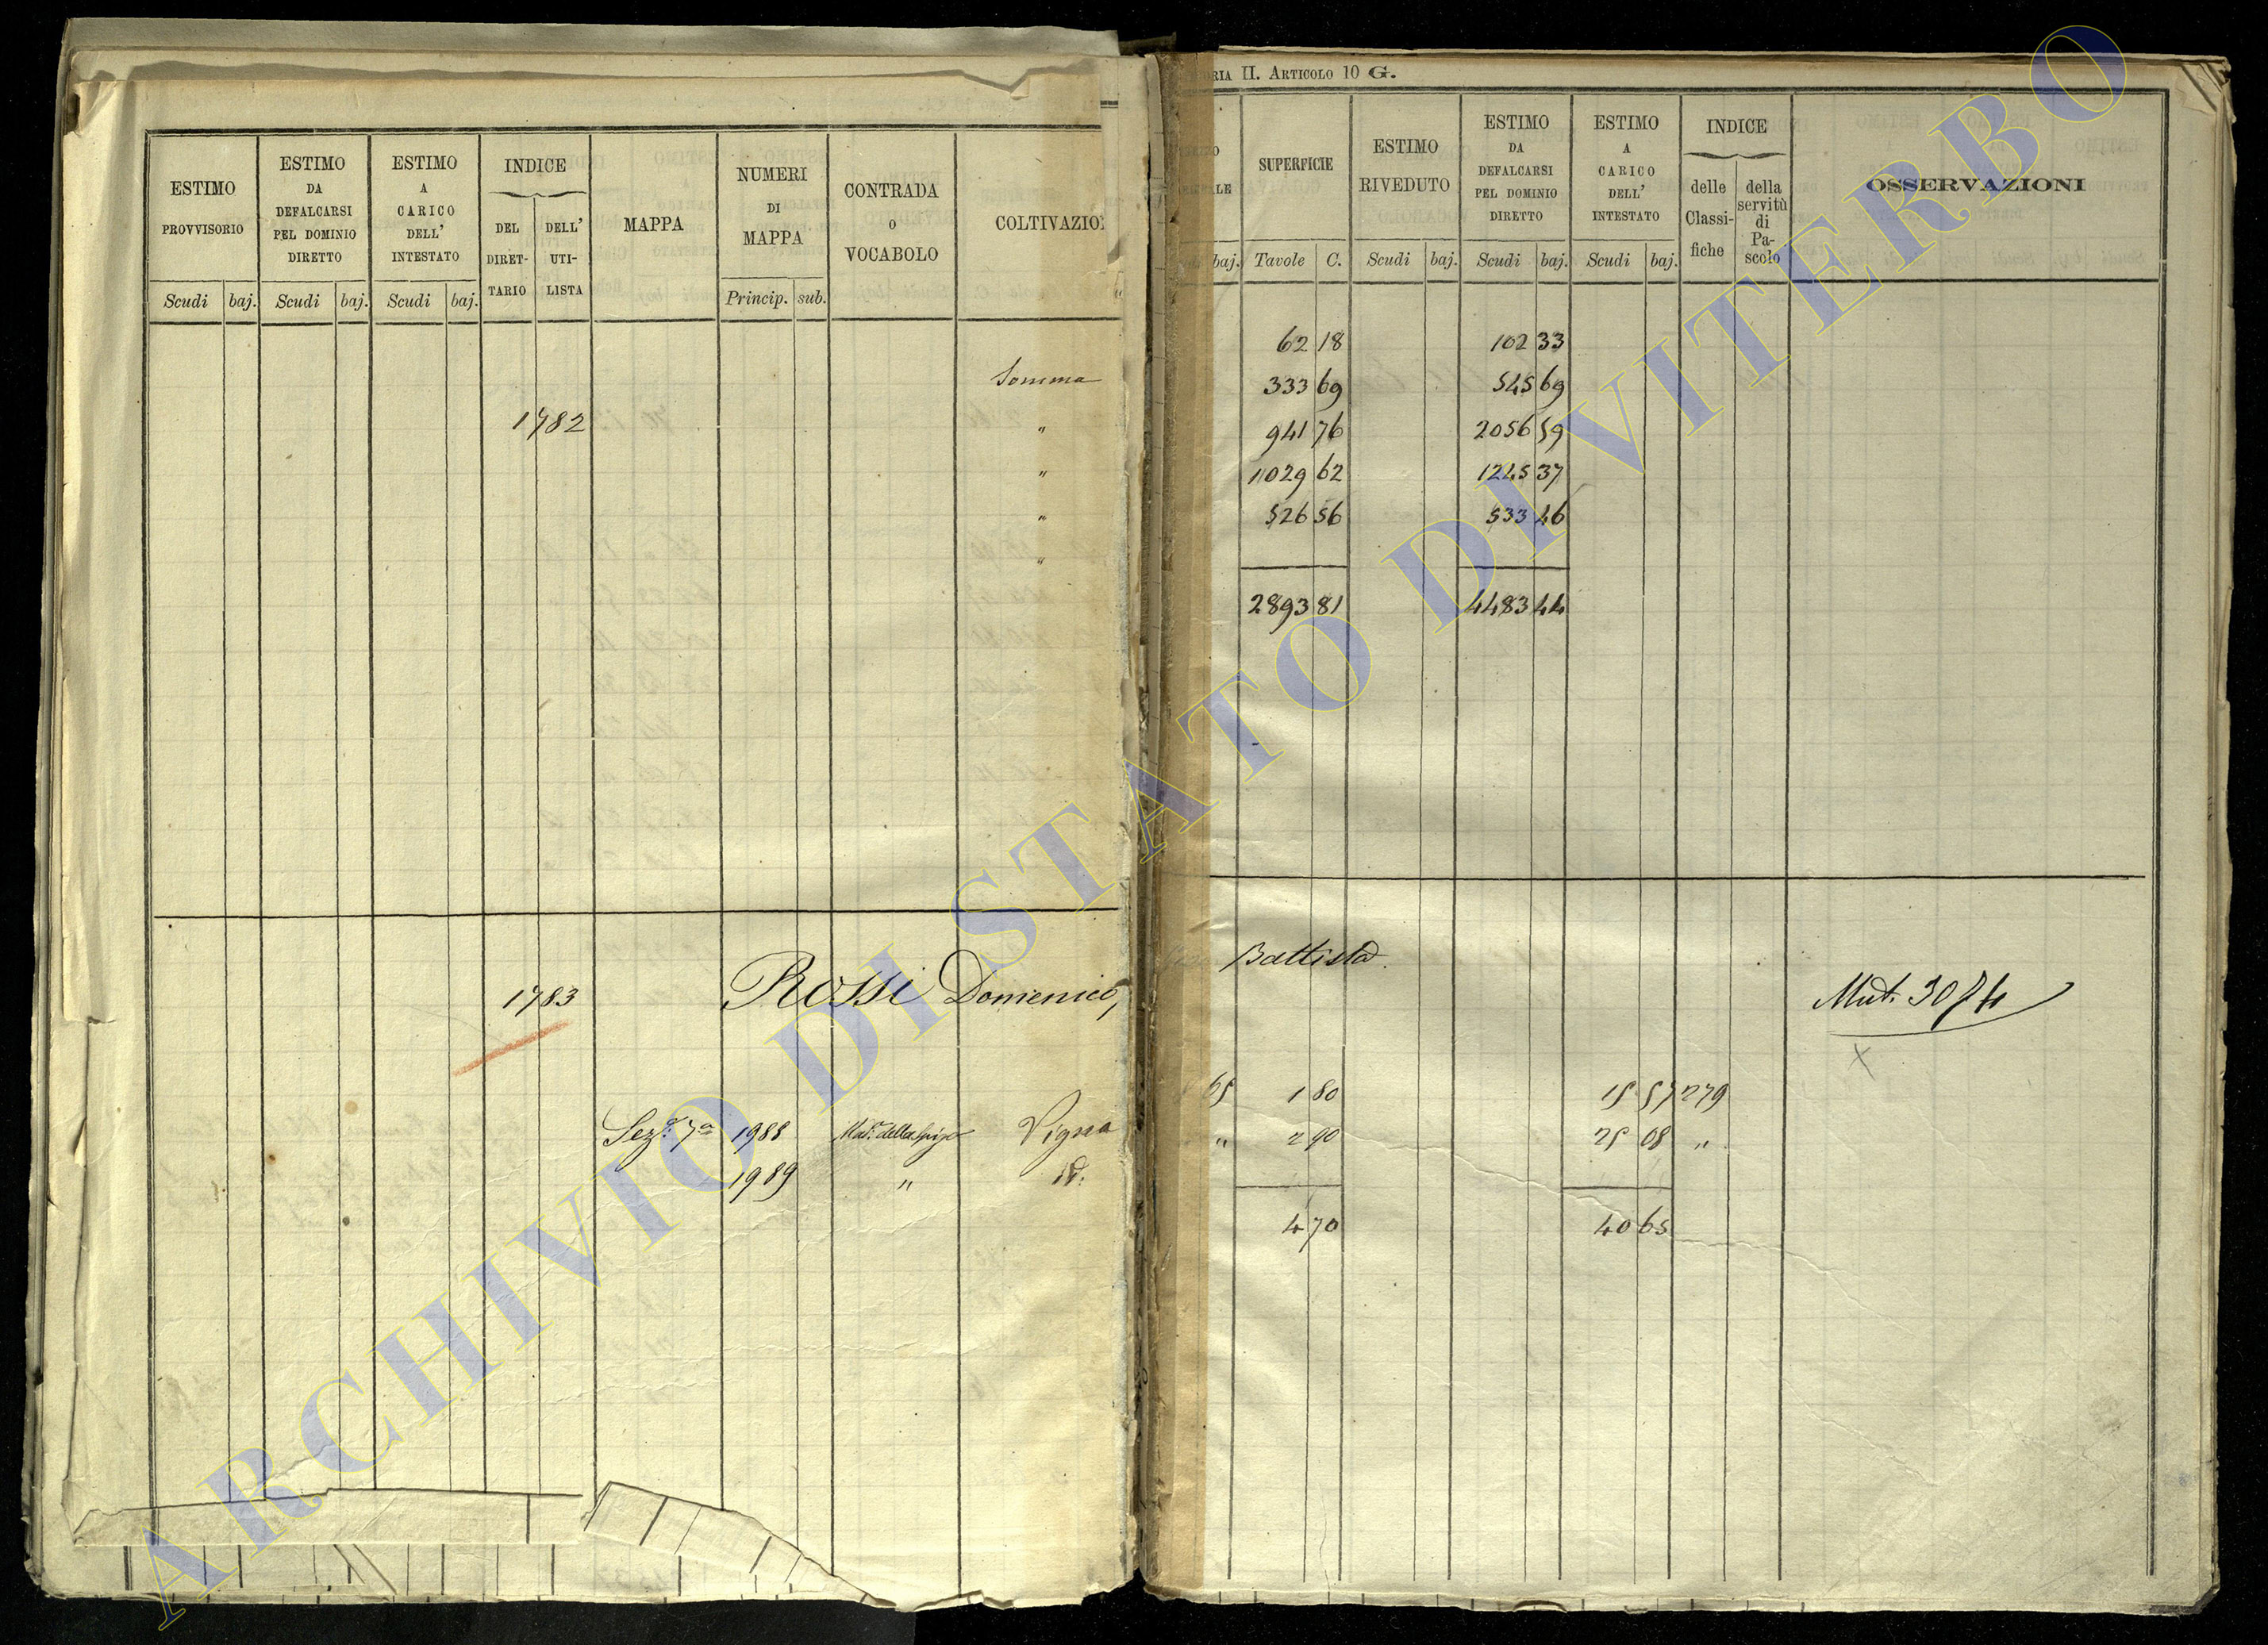 ESTIMO
PROVVISORIO
Scudi baj.
ESTIMO
DA
DEFALCARSI
PEL DOMINIO
DIRETTO
Scudi baj.
ESTIMO
A
CARICO
DELL'
INTESTATO
Scudi baj.
INDICE
DEL
DIRET-
TARIO
DELL'
UTI-
LISTA
MAPPA
NUMERI
DI
MAPPA
Princip. sub.
CONTRADA
O
VOCABOLO
COLTIVAZIO
Somma
1782 "
"
"
"
1783 Rossi Domenico,
Sez.e 7a 1988 Vigna
1989 " Id.
RIA II. ARTICOLO 10 G.
baj.
SUPERFICIE
Tavole C.
ESTIMO
RIVEDUTO
Scudi baj.
ESTIMO
DA
DEFALCARSI
PEL DOMINIO
DIRETTO
Scudi baj.
ESTIMO
A
CARICO
DELL'
INTESTATO
Scudi baj.
INDICE
delle
Classi-
fiche
della
servitù
di
Pa-
scolo
OSSERVAZIONI
62 18 102 33
333 69 545 69
941 76 2056 59
1029 62 1245 37
526 56 533 46
2893 81 4483 44
Battista
Mut. 3074
65 1 80 15 57 279
" 2 90 25 08 "
4 70 40 65
ARCHIVIO DI STATO DI VITERBO